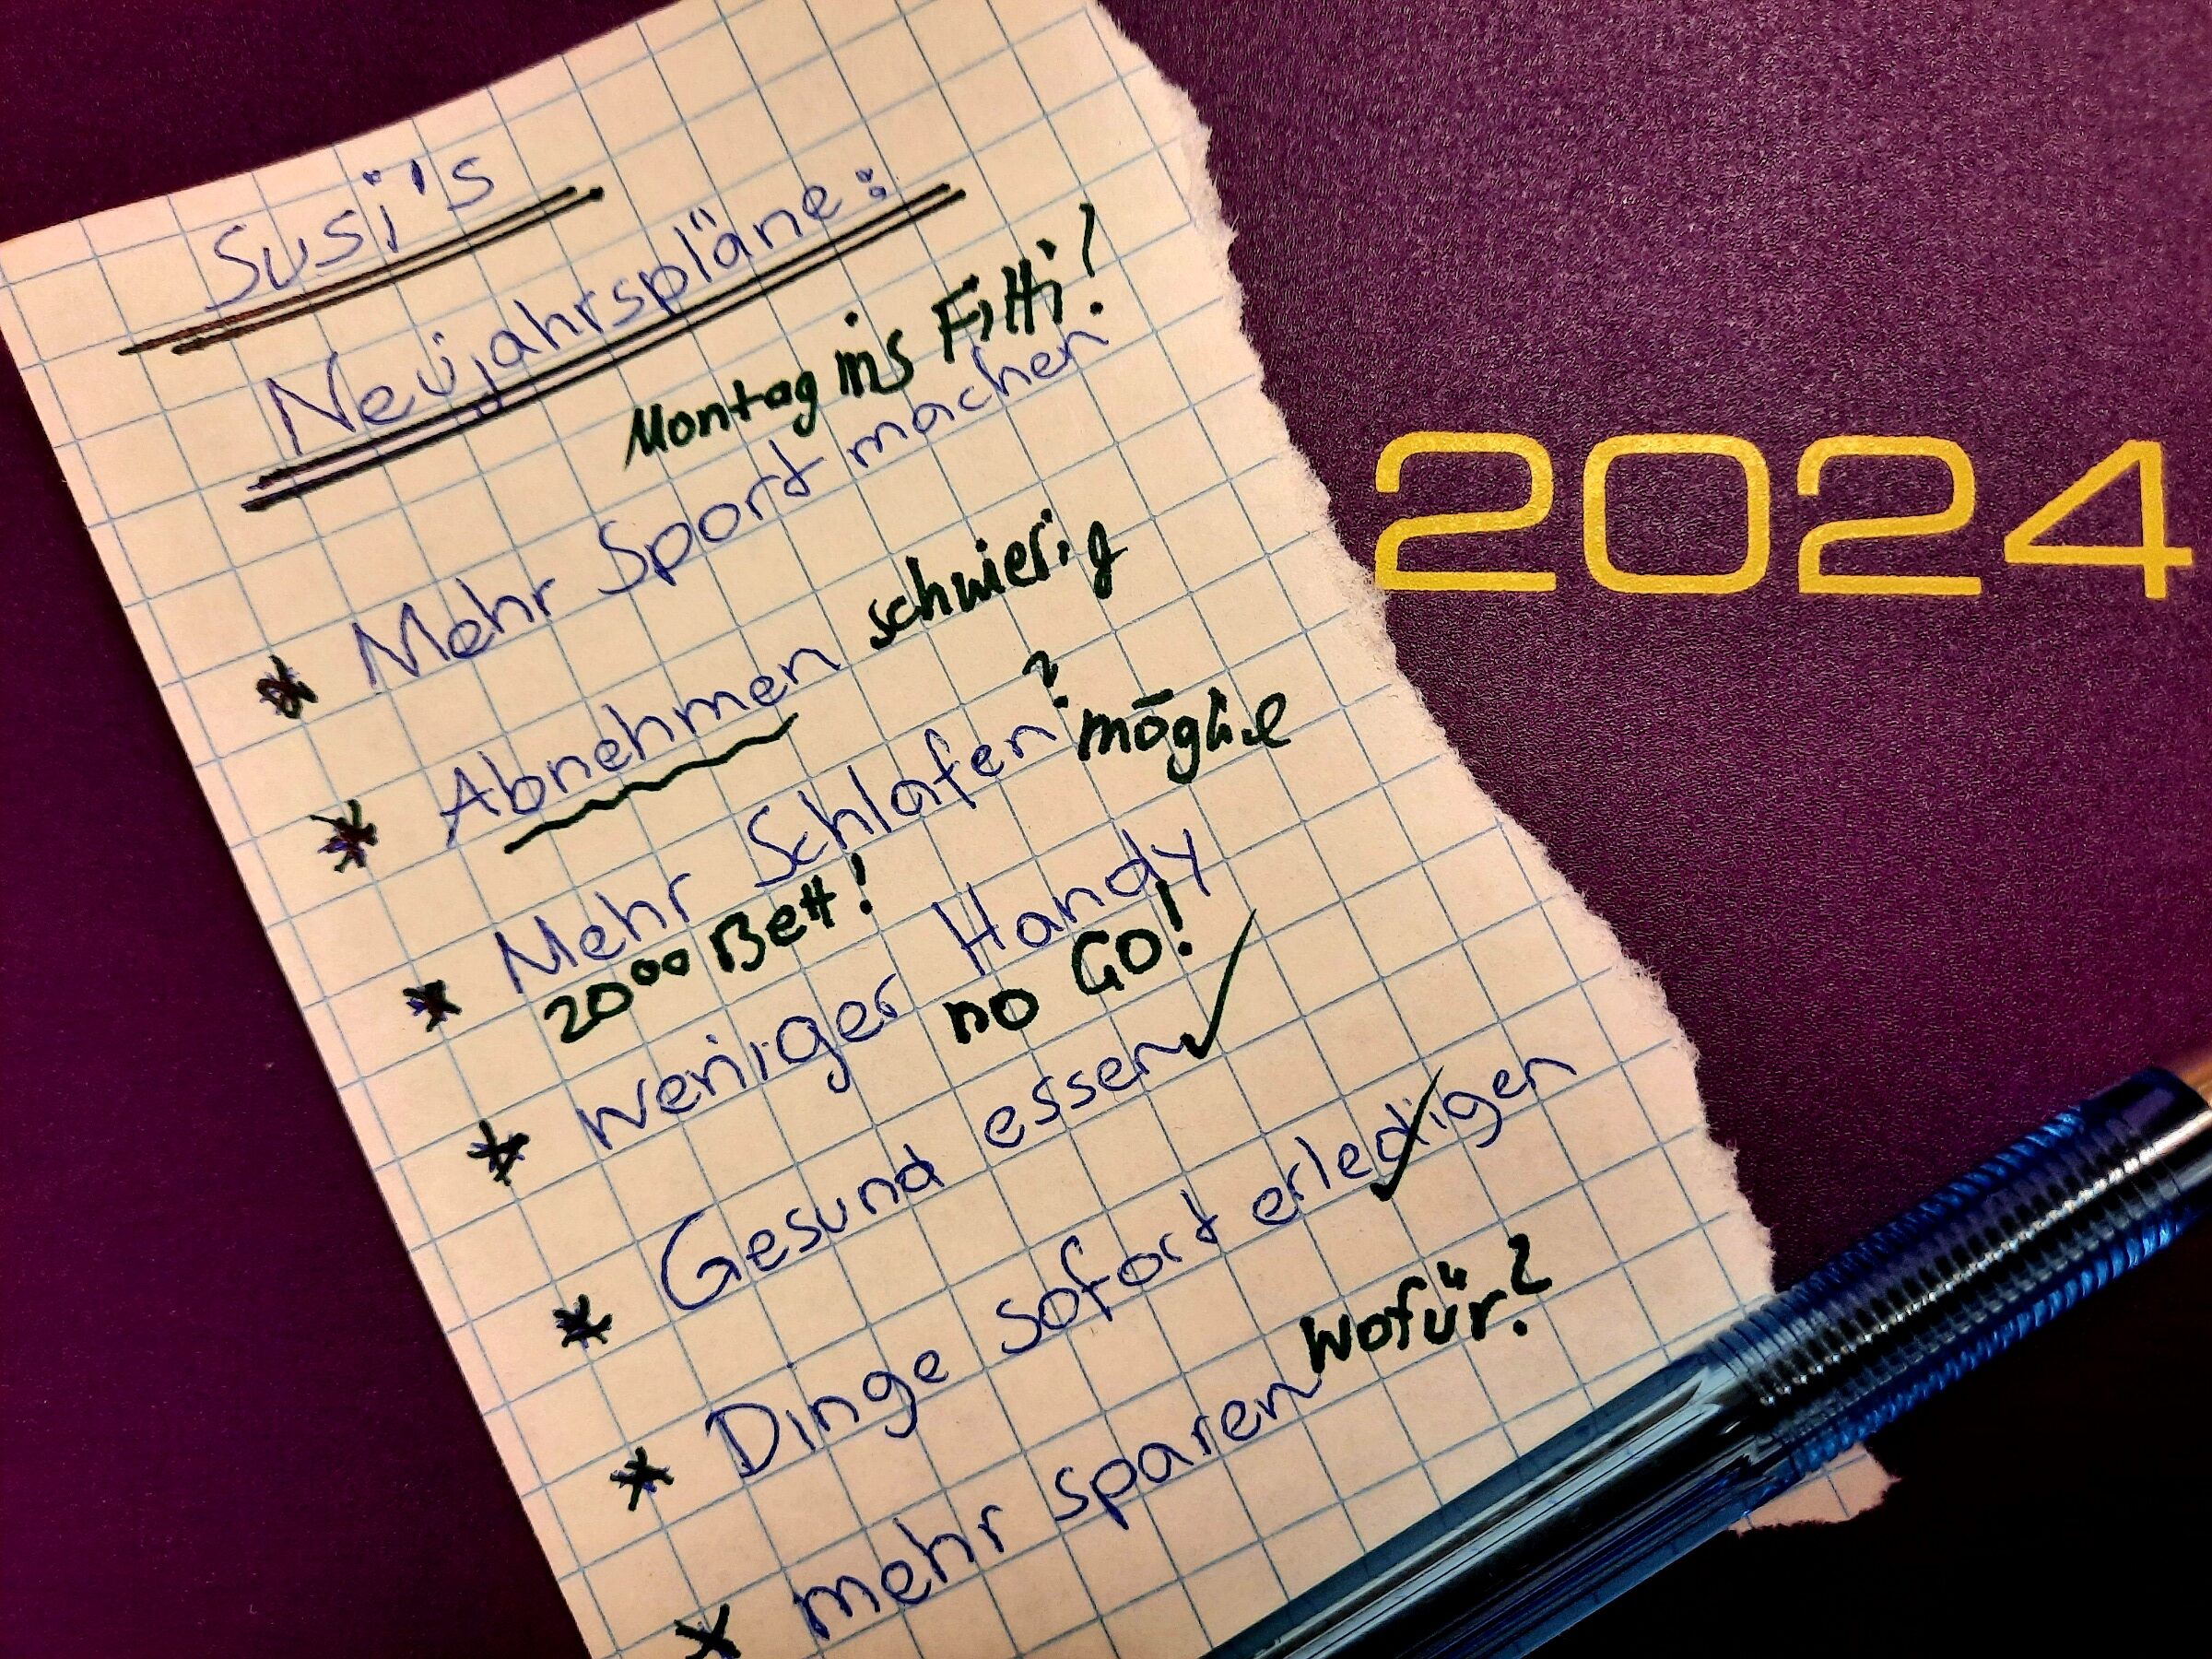 Susi's
Neujahrspläne:
Montag ins Fitti!
* Mehr Sport machen
* Abnehmen schwierig
* Mehr Schlafen? möglich
20⁰⁰ Bett!
* weniger Handy
no GO!
* Gesund essen ✓
* Dinge sofort erledigen ✓
* mehr sparen wofür?
2024